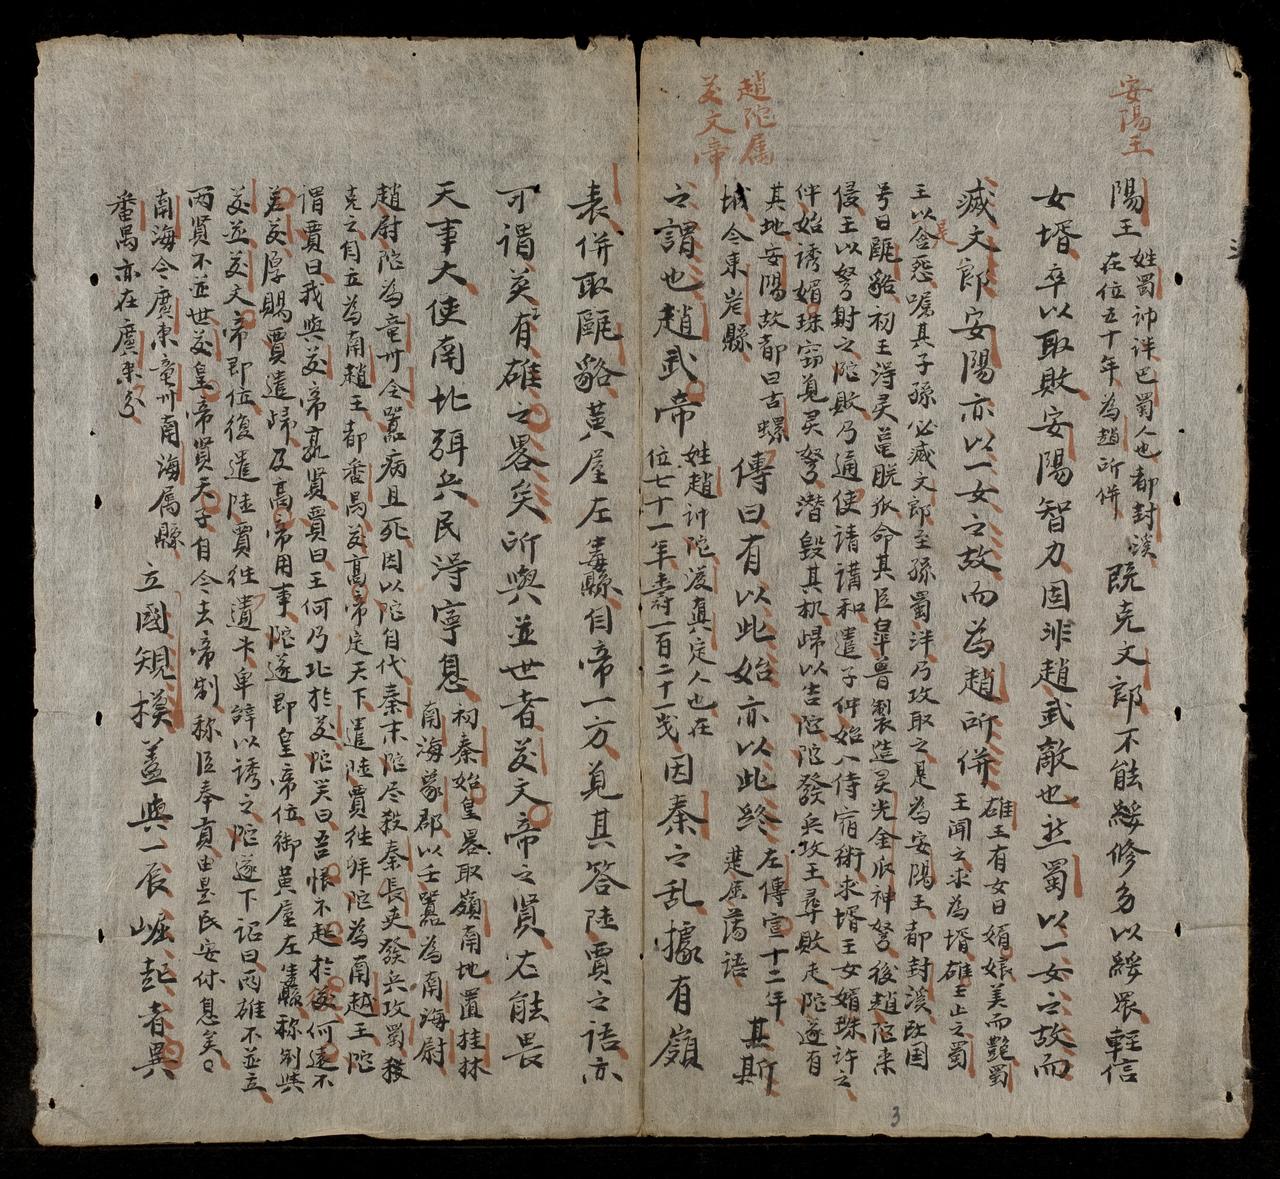 安陽王
趙陀属
漢文帝
陽王
姓蜀諱泮巴蜀人也都封溪
在位五十年為趙所併
既克文郎不能綏修多以綏畏輕信
女壻卒以取敗安陽智力固非趙武敵也然蜀以一女之故而
滅文郎安陽亦以一女之故而為趙所併
雄王有女曰媚娘美而艶蜀
王聞之求為壻雄王止之蜀
王以含是
怨嘱其子孫必滅文郎至孫蜀泮乃攻取之是為安陽王都封溪改国
号曰甌貉初王淂灵𪛇脱爪命其臣皐魯製造灵光金爪神弩後趙陀来
侵王以弩射之陀敗乃通使請講和遣子仲始入侍宿衛求壻王女媚珠許之
仲始誘媚珠窃覓灵弩潜毀其机歸以告陀陀發兵攻王尋敗走陀遂有
其地安陽故都曰古螺
城今東岸縣
傳曰有以此始亦以此終
左傳宣十二年
楚屈蕩語
其斯
之謂也趙武帝
姓趙諱陀漢真定人也在
位七十一年壽一百二十一歲
因秦之乱據有嶺
表併取甌貉黄屋左纛自帝一方覓其答陸賈之語亦
可謂英有雄之畧矣所與並世者漢文帝之賢右能畏
天事大使南北弭兵民淂寧息
初秦始皇畧取嶺南地置桂林
南海象郡以壬嚣為南海尉
趙尉陀為竜川令嚣病且死因以陀自代秦末陀尽殺秦長吏發兵攻蜀殺
克之自立為南趙王都番禺漢高帝定天下遣陸賈徃拜陀為南越王陀
謂賈曰我與漢帝孰賢賈曰王何乃比於漢陀笑曰吾恨不起於漢何遽不
若漢厚賜賈遣歸及高帝用事陀遂即皇帝位御黄屋左纛称制與
漢並漢文帝即位復遣陸賈徃遺卡卑辞以誘之陀遂下詔曰两雄不並立
两賢不並世漢皇帝賢天子自今去帝制称臣奉貢由是民安休息矣
南海今廣東竜川南海属縣
番禺亦在廣東分
立國規模盖與一辰崛起者異
3